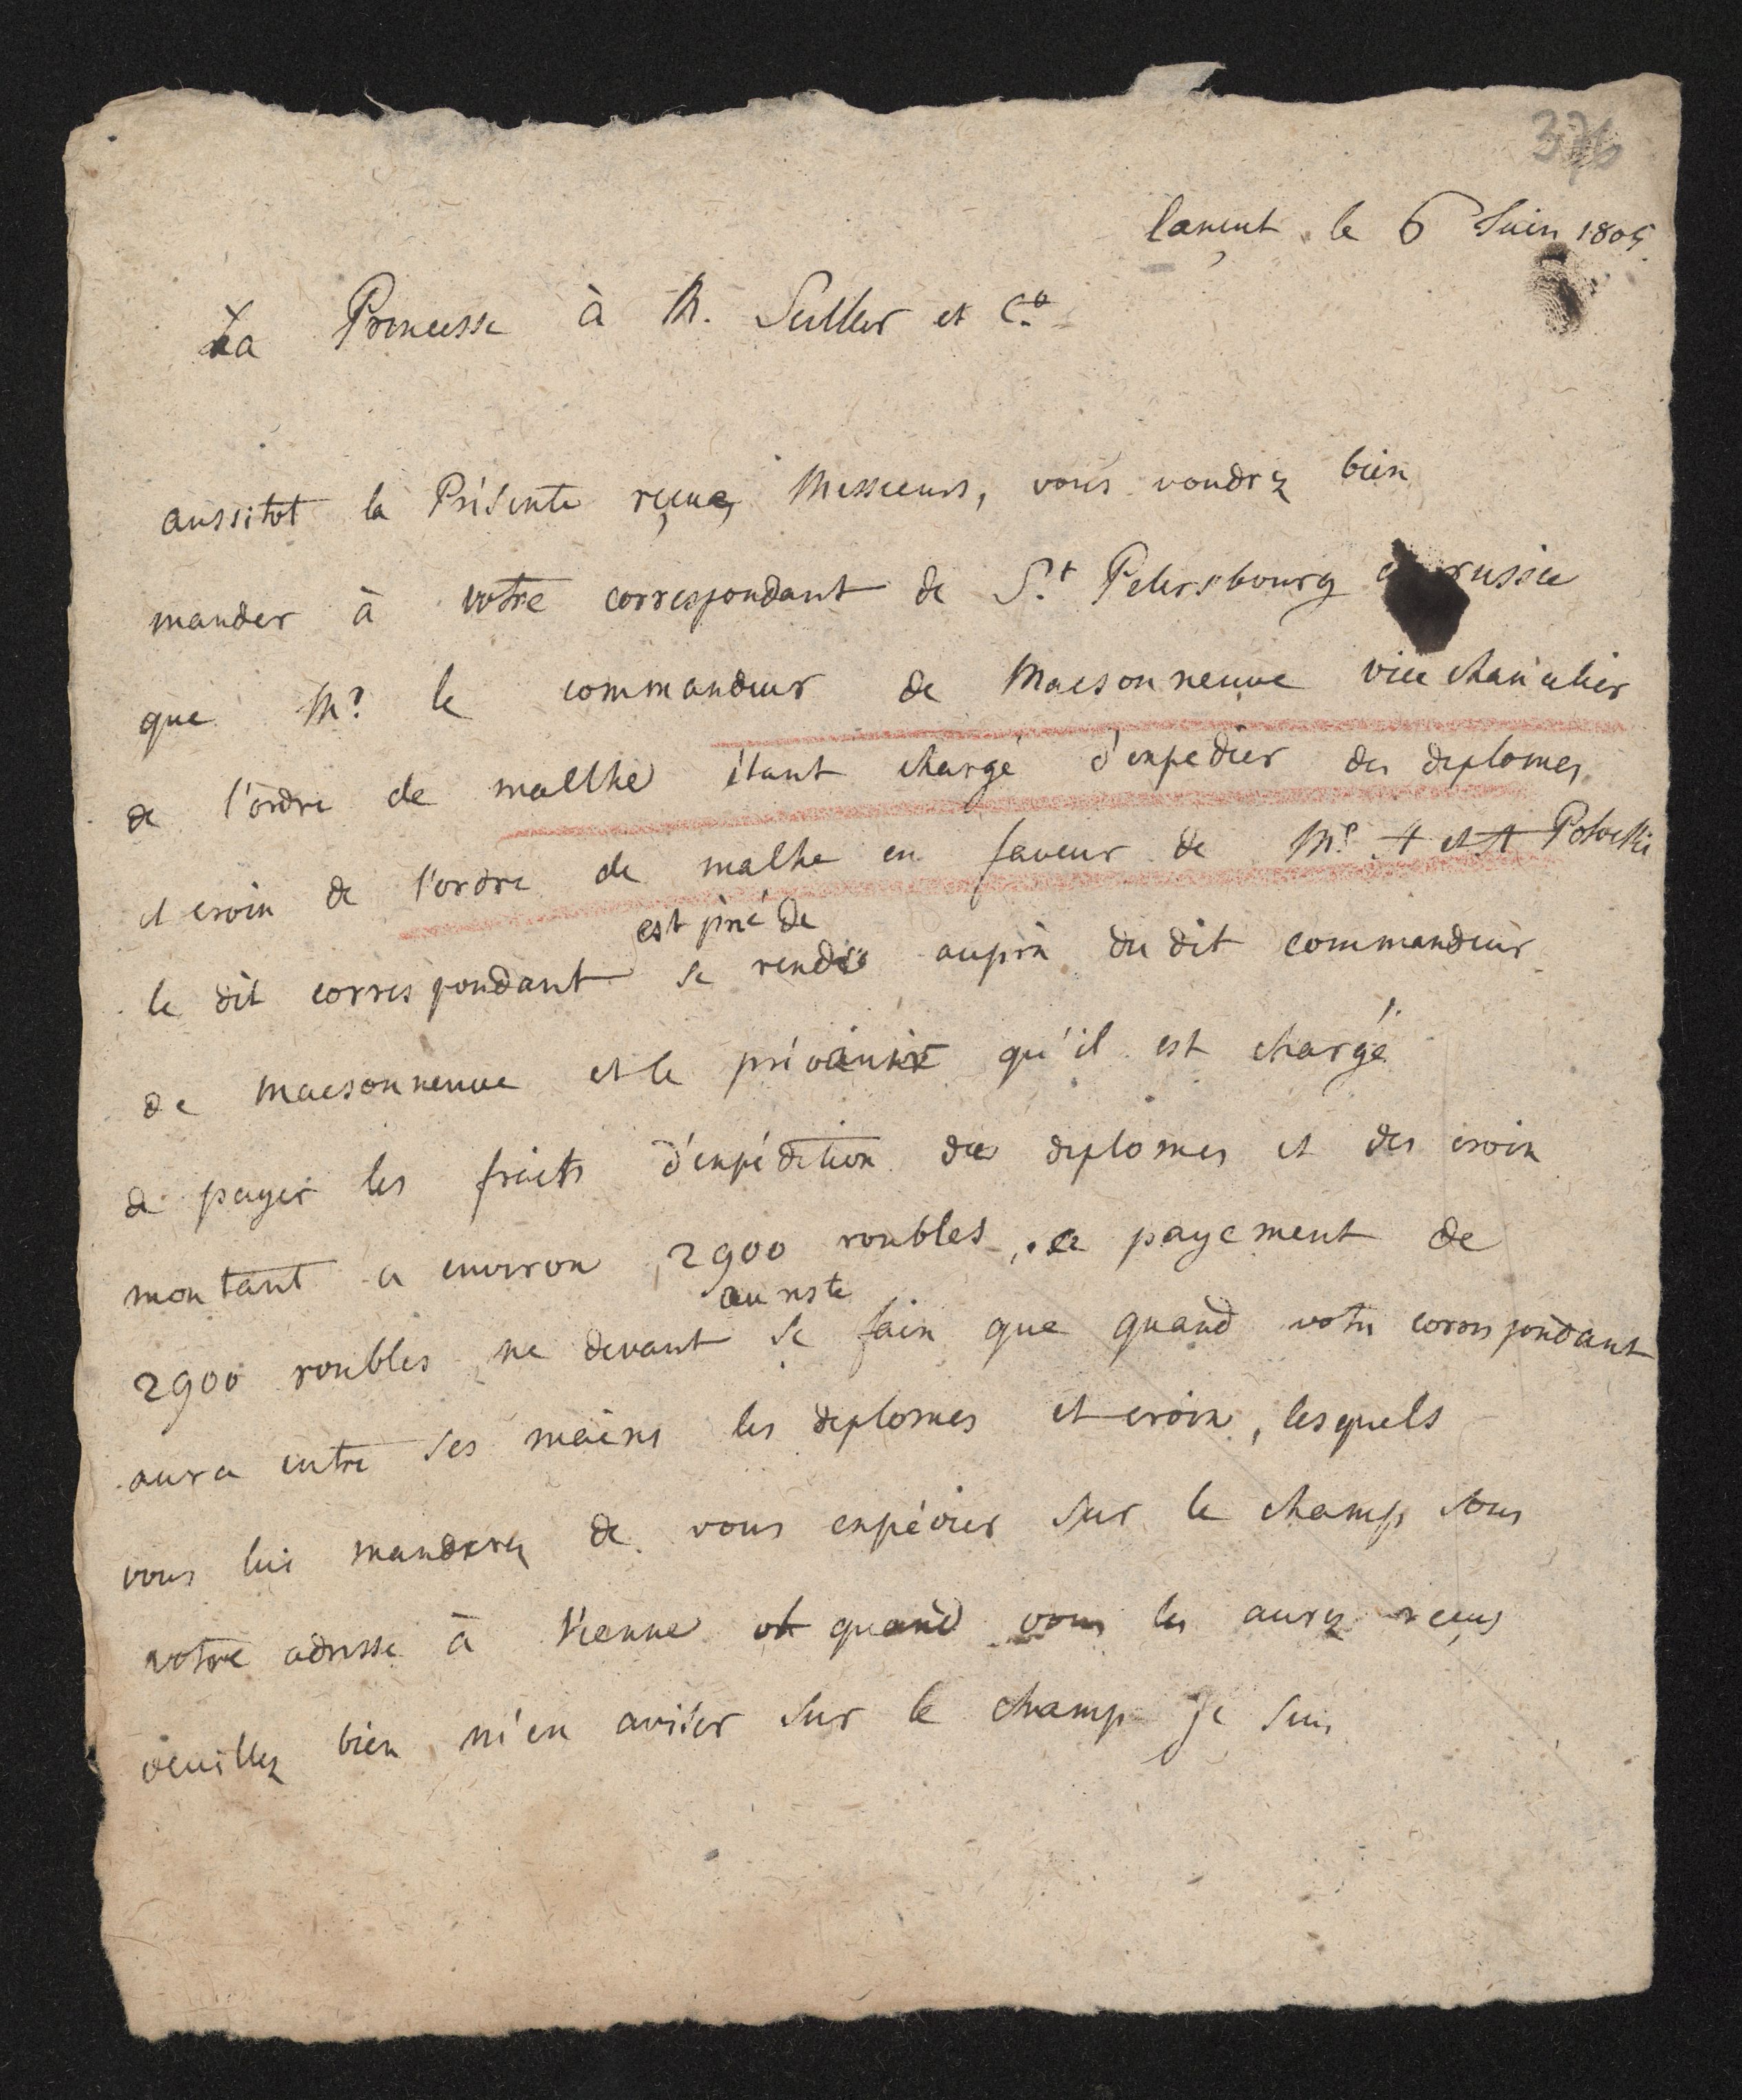 376
lançut le 6 Juin 1805
La Princesse à M. Sutller et C.º
aussitot la Présente reçue, Messieurs, vous voudrez bien
mander à votre correspondant de S.t Petersbourg russie
que M.r le commandeur de Maisonneuve vice chancelier
de l'ordre de malthe étant chargé d'expedier des diplomes
et croix de l'ordre de malhe en faveur de M.rs A et A Potocki
est prié de
le dit correspondant se rendre auprès du dit commandeur
de maisonneuve et le prévenir qu'il est chargé
de payer les fraits d'expédition des diplomes et des croix
montant a environ 2900 roubles, ce payement de
au reste
2900 roubles ne devant se faire que quand votre correspondant
aura entre ses mains les diplomes et croix, lesquels
vous lui manderez de vous expédier sur le champ sous
votre adresse à Vienne et quand vous les aurez reçus
veuillez bien m'en aviser sur le champ Je suis